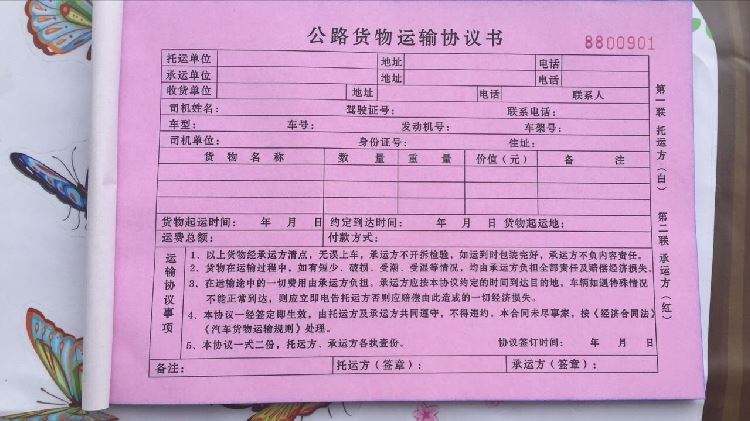 公路货物运输协议书
8800901
托运单位 地址 电话
承运单位 地址 电话
收货单位 地址 电话 联系人
司机姓名： 驾驶证号： 联系电话：
车型： 车号： 发动机号： 车架号：
司机单位： 身份证号： 住址：
货物名称 数量 重量 价值（元） 备注
货物起运时间： 年 月 日 约定到达时间： 年 月 日 货物起运地：
运费总额： 付款方式：
运输协议事项
1、以上货物经承运方清点，无误上车，承运方不开拆检验，如运到时包装完好，承运方不负内容责任。
2、货物在运输过程中，如有短少、破损、受潮、受湿等情况，均由承运方负担全部责任及赔偿经济损失。
3、在运输途中的一切费用由承运方负担。承运方应按本协议约定的时间到达目的地，车辆如遇特殊情况
不能正常到达，则应立即电告托运方否则应赔偿由此造成的一切经济损失。
4、本协议一经签定即生效，由托运方及承运方共同遵守，不得违约。本合同未尽事家，按《经济合同法》
《汽车货物运输规则》处理。
5、本协议一式二份，托运方、承运方各执壹份。 协议签订时间： 年 月 日
备注： 托运方（签章）： 承运方（签章）：
第一联 托运方（白）
第二联 承运方（红）